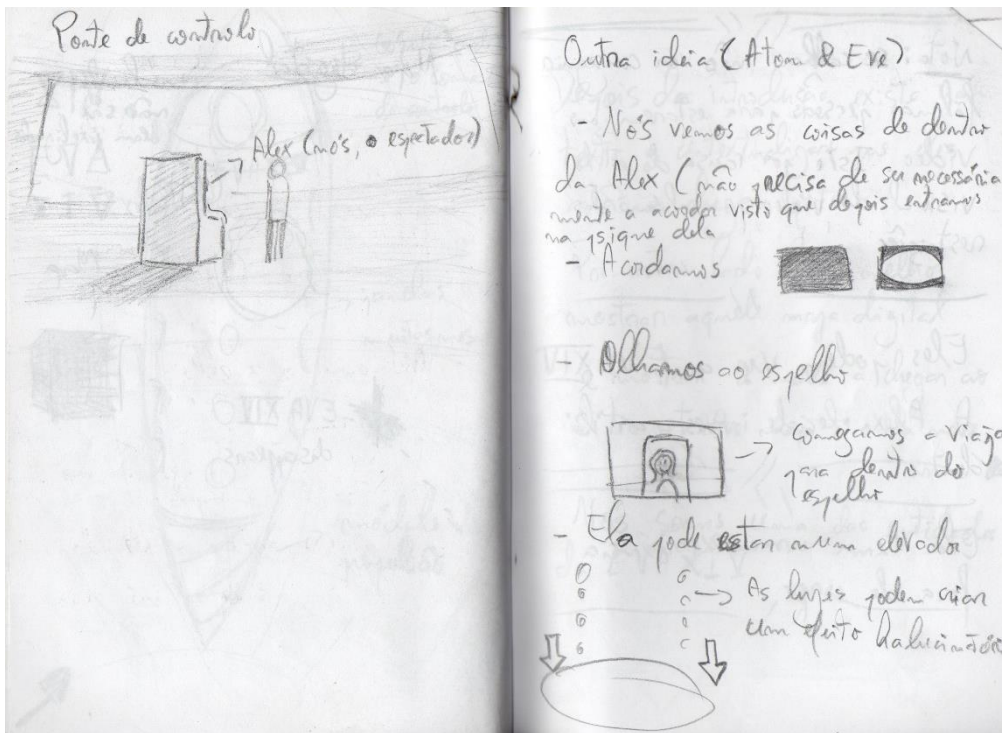 Ponte de controlo
Alex (nós, o espetador)
Outra ideia (Atom & Eve)
- Nós vemos as coisas de dentro
da Alex (não precisa de ser necessária
mente a acordar visto que depois entramos
na psique dela
- Acordamos
- Olhamos ao espelho
começamos a viagem
para dentro do
espelho
- Ela pode estar num elevador
As luzes podem criar
um efeito